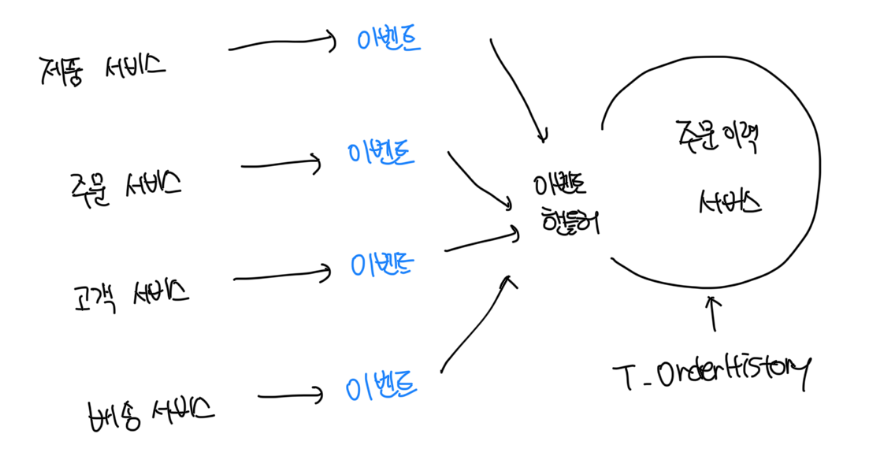 제품 서비스
이벤트
주문 서비스
이벤트
고객 서비스
이벤트
배송 서비스
이벤트
이벤트
핸들러
주문이력
서비스
T_OrderHistory